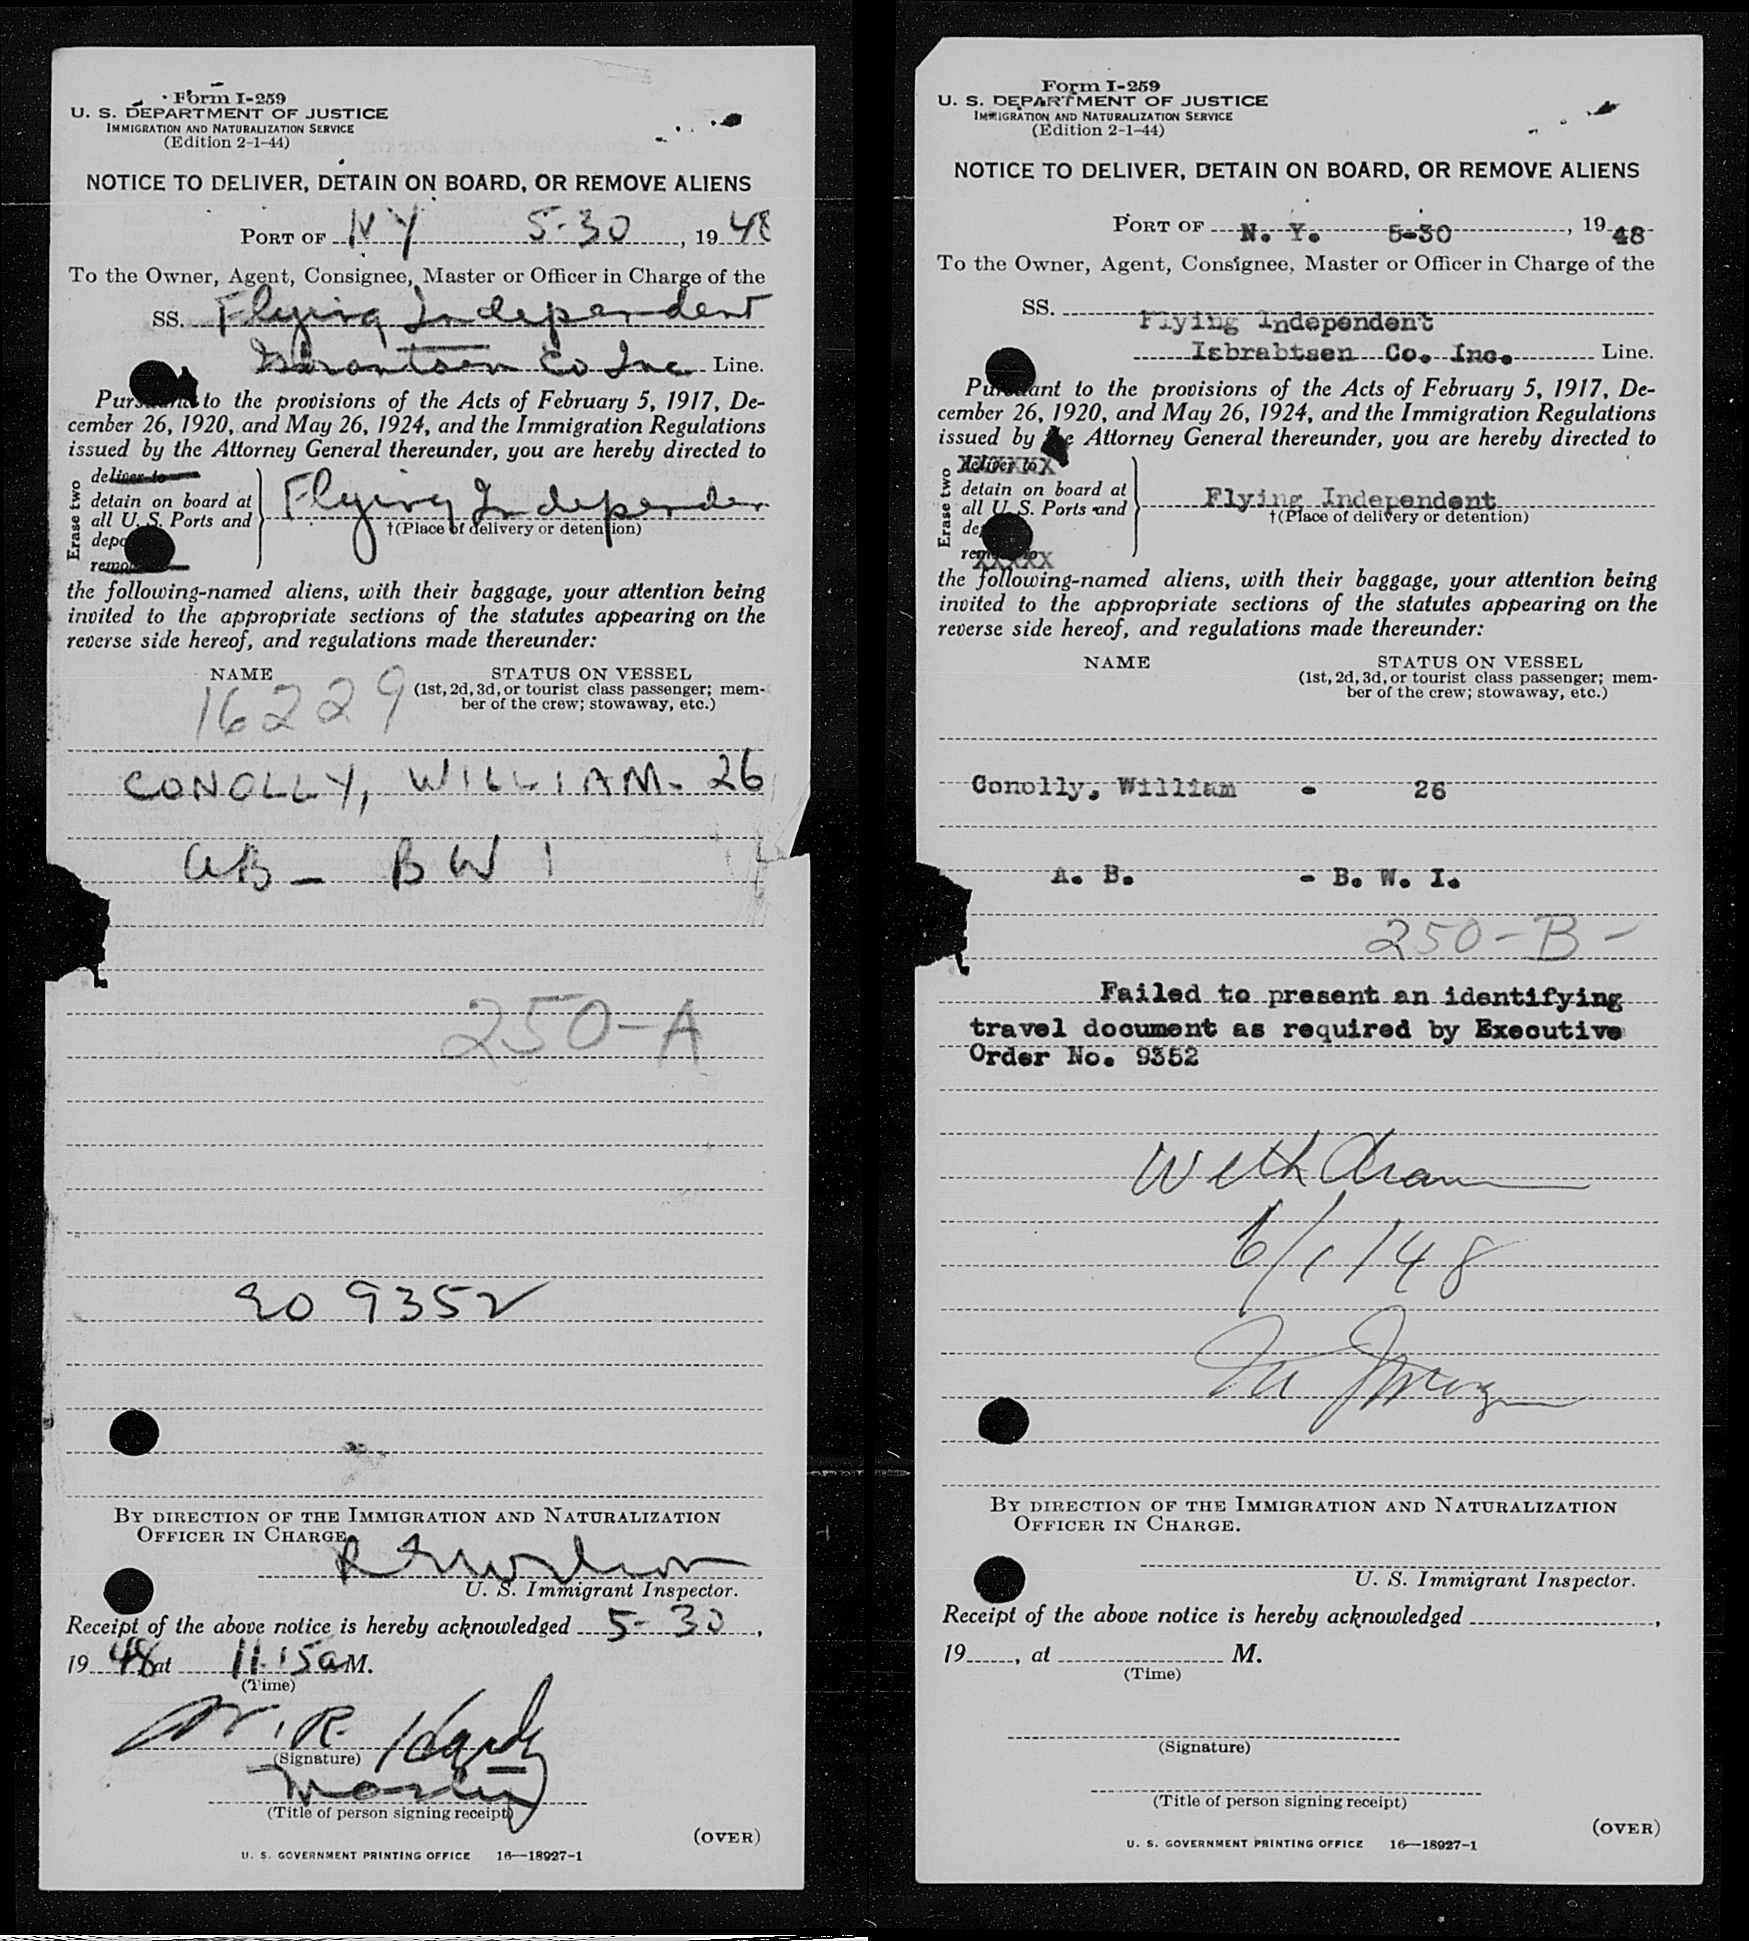 Form I-259
U. S. DEPARTMENT OF JUSTICE
IMMIGRATION AND NATURALIZATION SERVICE
(Edition 2-1-44)
NOTICE TO DELIVER, DETAIN ON BOARD, OR REMOVE ALIENS
PORT OF NY 5-30, 1948
To the Owner, Agent, Consignee, Master or Officer in Charge of the
SS. Flying Independent
Co Inc Line.
to the provisions of the Acts of February 5, 1917, De-
cember 26, 1920, and May 26, 1924, and the Immigration Regulations
issued by the Attorney General thereunder, you are hereby directed to
Erase two
deliver to
detain on board at
all U. S. Ports and
Flying Independen
†(Place of delivery or detention)
the following-named aliens, with their baggage, your attention being
invited to the appropriate sections of the statutes appearing on the
reverse side hereof, and regulations made thereunder:
NAME STATUS ON VESSEL
(1st, 2d, 3d, or tourist class passenger; mem-
ber of the crew; stowaway, etc.)
16229
CONOLLY, WILLIAM - 26
AB - BWI
250-A
EO 9352
BY DIRECTION OF THE IMMIGRATION AND NATURALIZATION
OFFICER IN CHARGE.
U. S. Immigrant Inspector.
Receipt of the above notice is hereby acknowledged 5-30,
1948 at 11:15 a M.
(Time)
W. R. Hardy
(Signature)
Master
(Title of person signing receipt)
(OVER)
U. S. GOVERNMENT PRINTING OFFICE 16—18927-1
Form I-259
U. S. DEPARTMENT OF JUSTICE
IMMIGRATION AND NATURALIZATION SERVICE
(Edition 2-1-44)
NOTICE TO DELIVER, DETAIN ON BOARD, OR REMOVE ALIENS
PORT OF N. Y. 5-30, 1948
To the Owner, Agent, Consignee, Master or Officer in Charge of the
SS. Flying Independent
Isbrabtsen Co. Inc. Line.
Pursuant to the provisions of the Acts of February 5, 1917, De-
cember 26, 1920, and May 26, 1924, and the Immigration Regulations
issued by the Attorney General thereunder, you are hereby directed to
Erase two
deliver to
detain on board at
all U. S. Ports and
remove to
Flying Independent
†(Place of delivery or detention)
the following-named aliens, with their baggage, your attention being
invited to the appropriate sections of the statutes appearing on the
reverse side hereof, and regulations made thereunder:
NAME STATUS ON VESSEL
(1st, 2d, 3d, or tourist class passenger; mem-
ber of the crew; stowaway, etc.)
Conolly, William - 26
A. B. - B. W. I.
250-B-
Failed to present an identifying
travel document as required by Executive
Order No. 9352
Withdrawn
6/1/48
BY DIRECTION OF THE IMMIGRATION AND NATURALIZATION
OFFICER IN CHARGE.
U. S. Immigrant Inspector.
Receipt of the above notice is hereby acknowledged ,
19 , at M.
(Time)
(Signature)
(Title of person signing receipt)
(OVER)
U. S. GOVERNMENT PRINTING OFFICE 16—18927-1